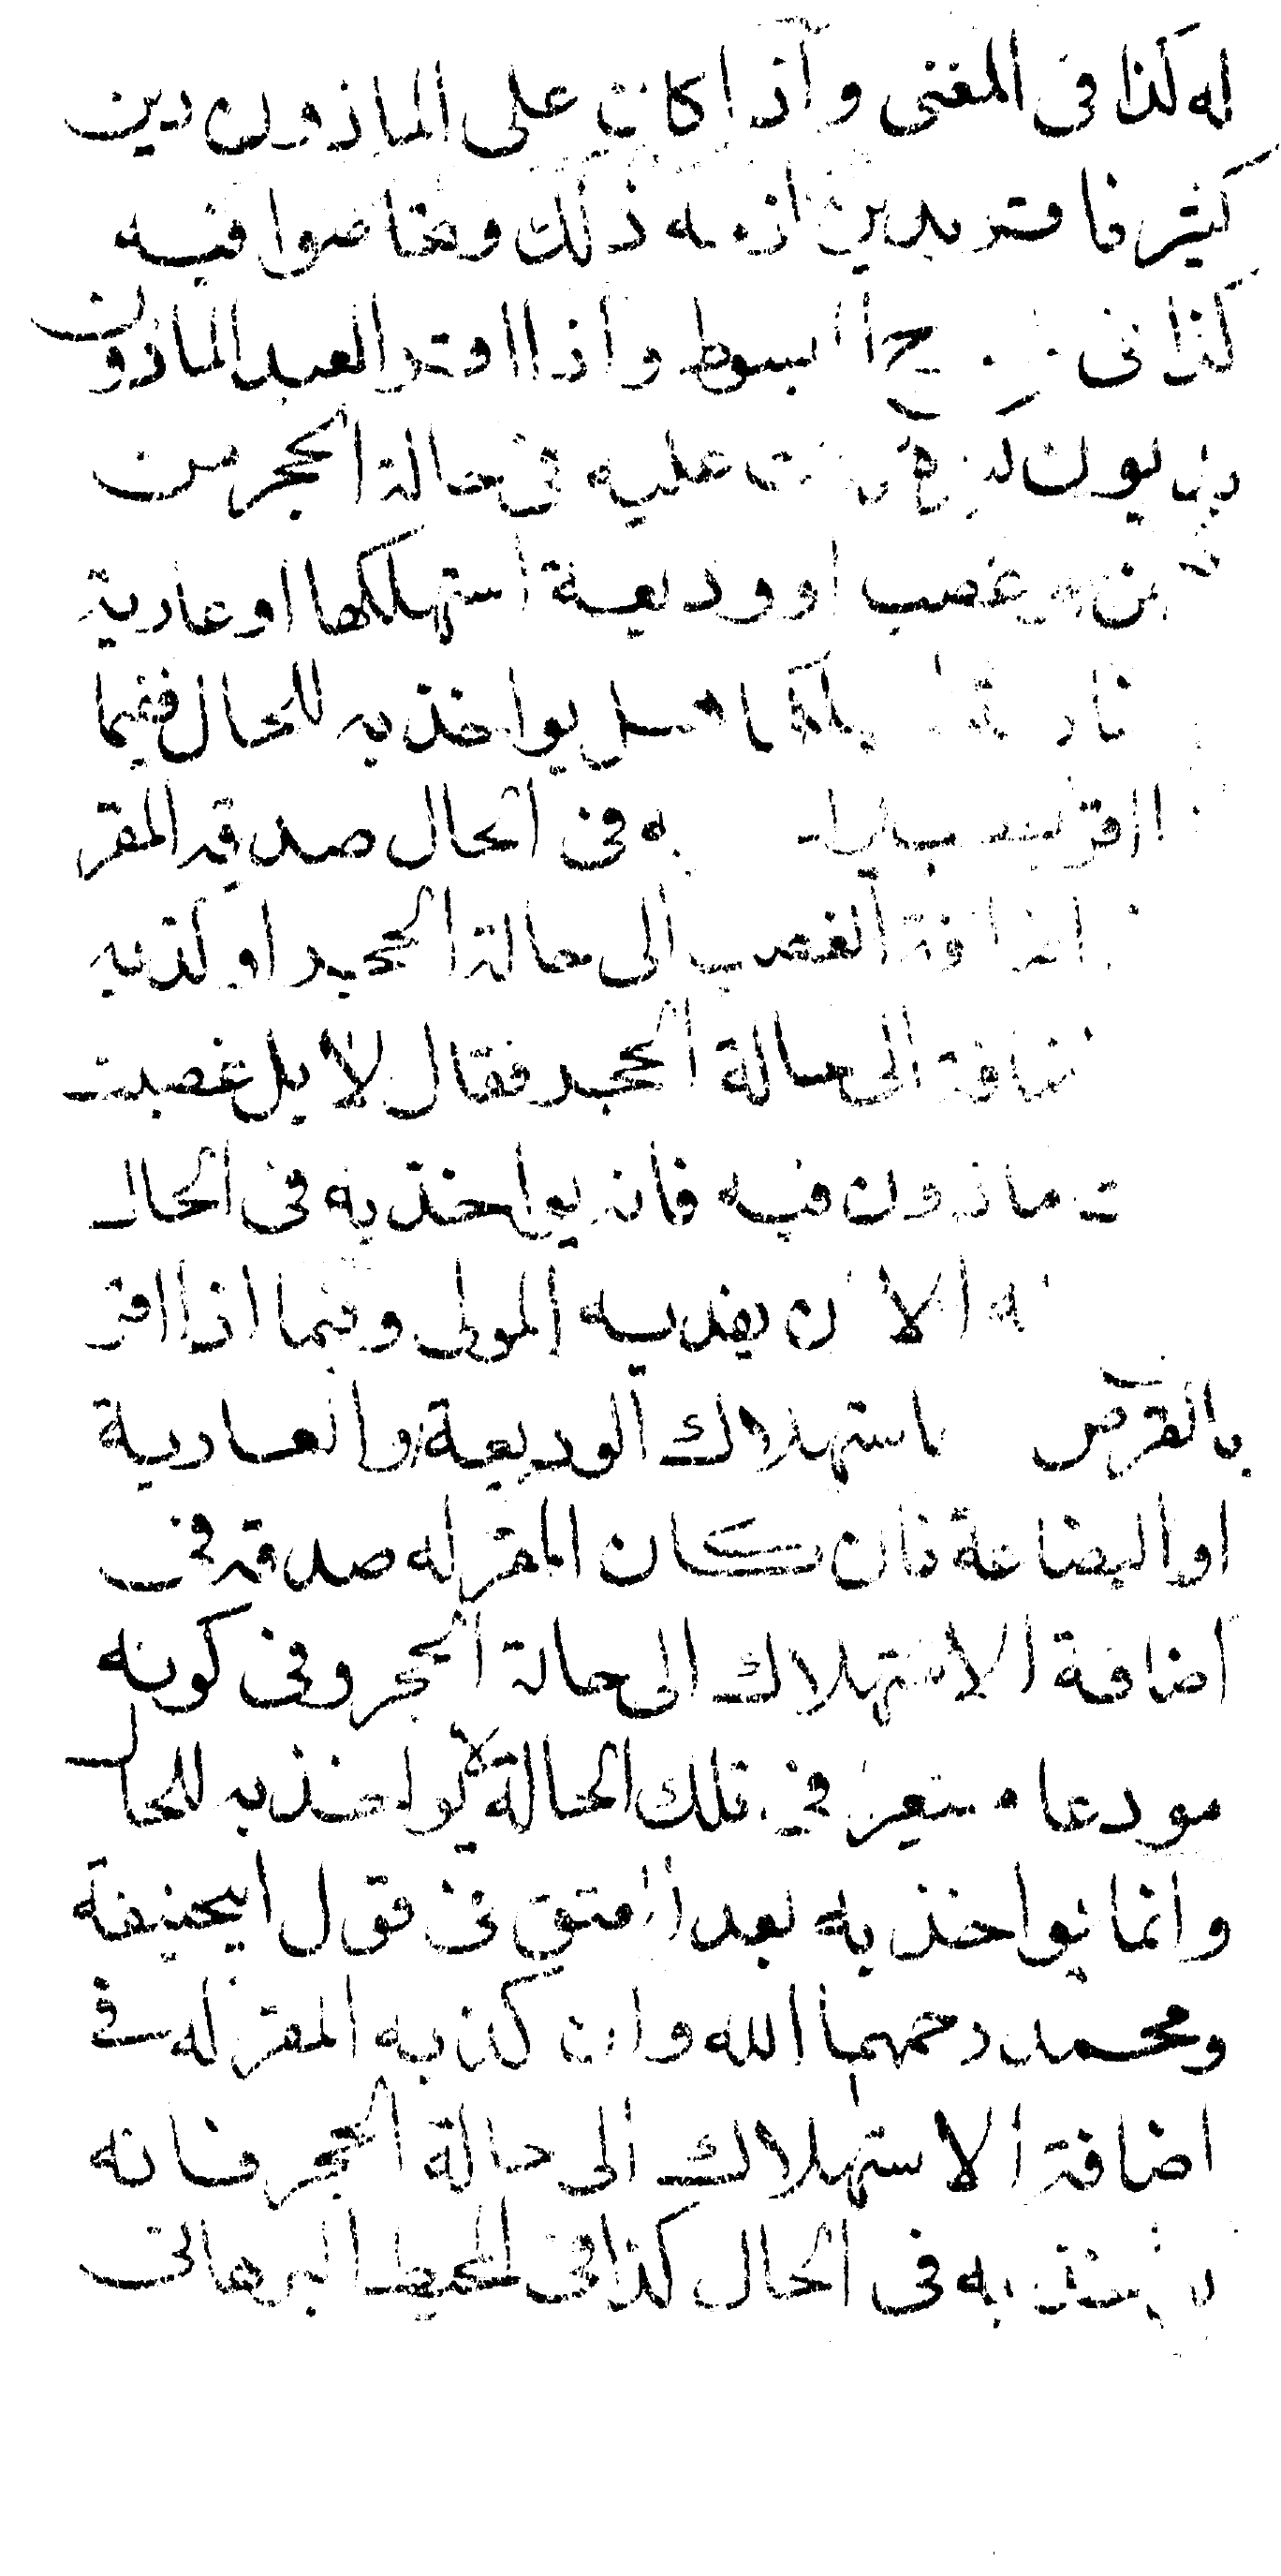 له كذا في المغنى واذا كان على الماذون دين
كثير فاقر بدين لزمه ذلك وتحاصوا فيه
كذا في المبسوط واذا اقر العبد الماذون
بديون عليه في حالة الحجر من
غصب او وديعة استهلكها او عارية
يواخذ به للحال ففيما
اقر به في الحال صدقه المقر
اضافة الغصب الى حالة الحجر او كذبه
الى حالة الحجر فقال لا بل غصبت
ماذون فيه فانه يواخذ به في الحال
الا ان يفديه المولى وفيما اذا اقر
بالقرض باستهلاك الوديعة والعارية
او البضاعة فان كان المقر له صدقه في
اضافة الاستهلاك الى حالة الحجر وفي كونه
مودعا في تلك الحالة لا يواخذ به للحال
وانما يواخذ به بعد العتق في قول ابيحنيفة
ومحمد رحمهما الله وان كذبه المقر له في
اضافة الاستهلاك الى حالة الحجر فانه
به في الحال كذا في المحيط البرهانى